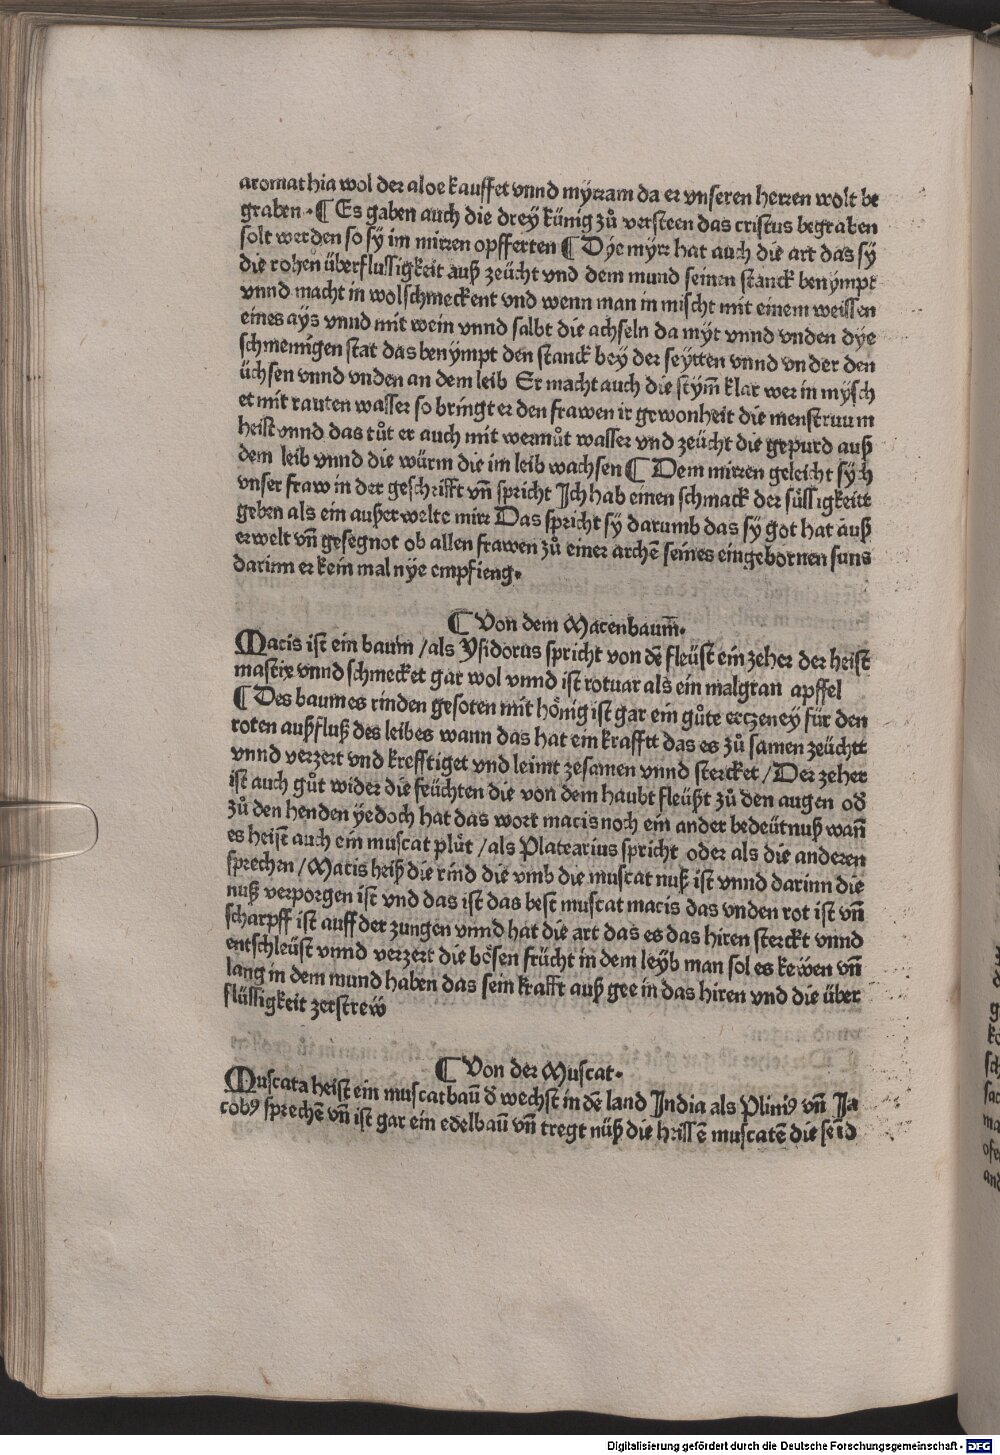 aromathia wol der aloe kauffet vnnd mÿrram da er vnseren herren wolt be
graben · ¶ Es gaben auch die dreÿ künig zů versteen das cristus begraben
solt werden so sÿ im mirren opfferten ¶ Dÿe mÿrr hat auch die art das sÿ
die rohen überflussigkeit auß zeücht vnd dem mund seinen stanck benÿmpt
vnnd macht in wolschmeckent vnd wenn man in mischt mit einem weissen
eines aÿs vnnd mit wein vnnd salbt die achseln da mÿt vnnd vnden dÿe
schmeinigen stat das benÿmpt den stanck beÿ der seÿtten vnnd vnder den
üchsen vnnd vnden an dem leib Er macht auch die stÿm̄ klar wer in mÿsch
et mit rauten wasser so bringt er den frawen ir gewonheit die menstruum
heist vnnd das tůt er auch mit wermůt wasser vnd zeücht die gepurd auß
dem leib vnnd die würm die im leib wachsen ¶ Dem mirren geleicht sÿch
vnser fraw in der geschrifft vn̄ spricht Ich hab einen schmack der süssigkeitt
geben als ein außerwelte mirr Das spricht sÿ darumb das sÿ got hat auß
erwelt vn̄ gesegnot ob allen frawen zů einer archē seines eingebornen suns
darinn er kein mal nÿe empfieng·
¶ Von dem Macenbaum̄·
Macis ist ein baum / als Ysidorus spricht von dē fleüst ein zeher der heist
mastix vnnd schmecket gar wol vnnd ist rotuar als ein malgran apffel
¶ Des baumes rinden gesoten mit hönig ist gar ein gůte ertzeneÿ für den
roten außfluß des leibes wann das hat ein krafftt das es zů samen zeüchtt
vnnd verzert vnd krefftiget vnd leimt zesamen vnnd stercket / Der zeher
ist auch gůt wider die feüchten die von dem haubt fleüßt zů den augen od̄
zů den henden ÿedoch hat das wort macis noch ein ander bedeütnuß wan̄
es heisē auch ein muscat plůt / als Platearius spricht oder als die anderen
sprechen / Macis heiß die rind die vmb die muscat nuß ist vnnd darinn die
nuß verporgen ist vnd das ist das best muscat macis das vnden rot ist vn̄
scharpff ist auff der zungen vnnd hat die art das es das hiren sterckt vnnd
entschleüst vnnd verzert die bösen frücht in dem leÿb man sol es kewen vn̄
lang in dem mund haben das sein krafft auß gee in das hiren vnd die über
flüssigkeit zerstrew
¶ Von der Muscat·
Muscata heist ein muscatbau̅ d̄ wechst in dē land India als Plini⁹ vn̄ Ja
cob⁹ sprechē vn̄ ist gar ein edelbau̅ vn̄ tregt nüß die heissē muscatē die seīd
Digitalisierung gefördert durch die Deutsche Forschungsgemeinschaft - DFG